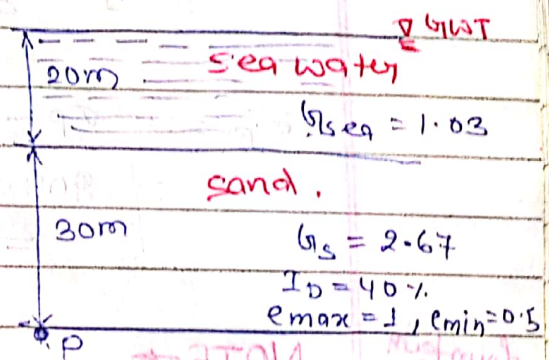 GWT
20m
Sea water
Gsea = 1.03
sand.
30m
Gs = 2.67
ID = 40 %
emax = 1, emin = 0.5
P